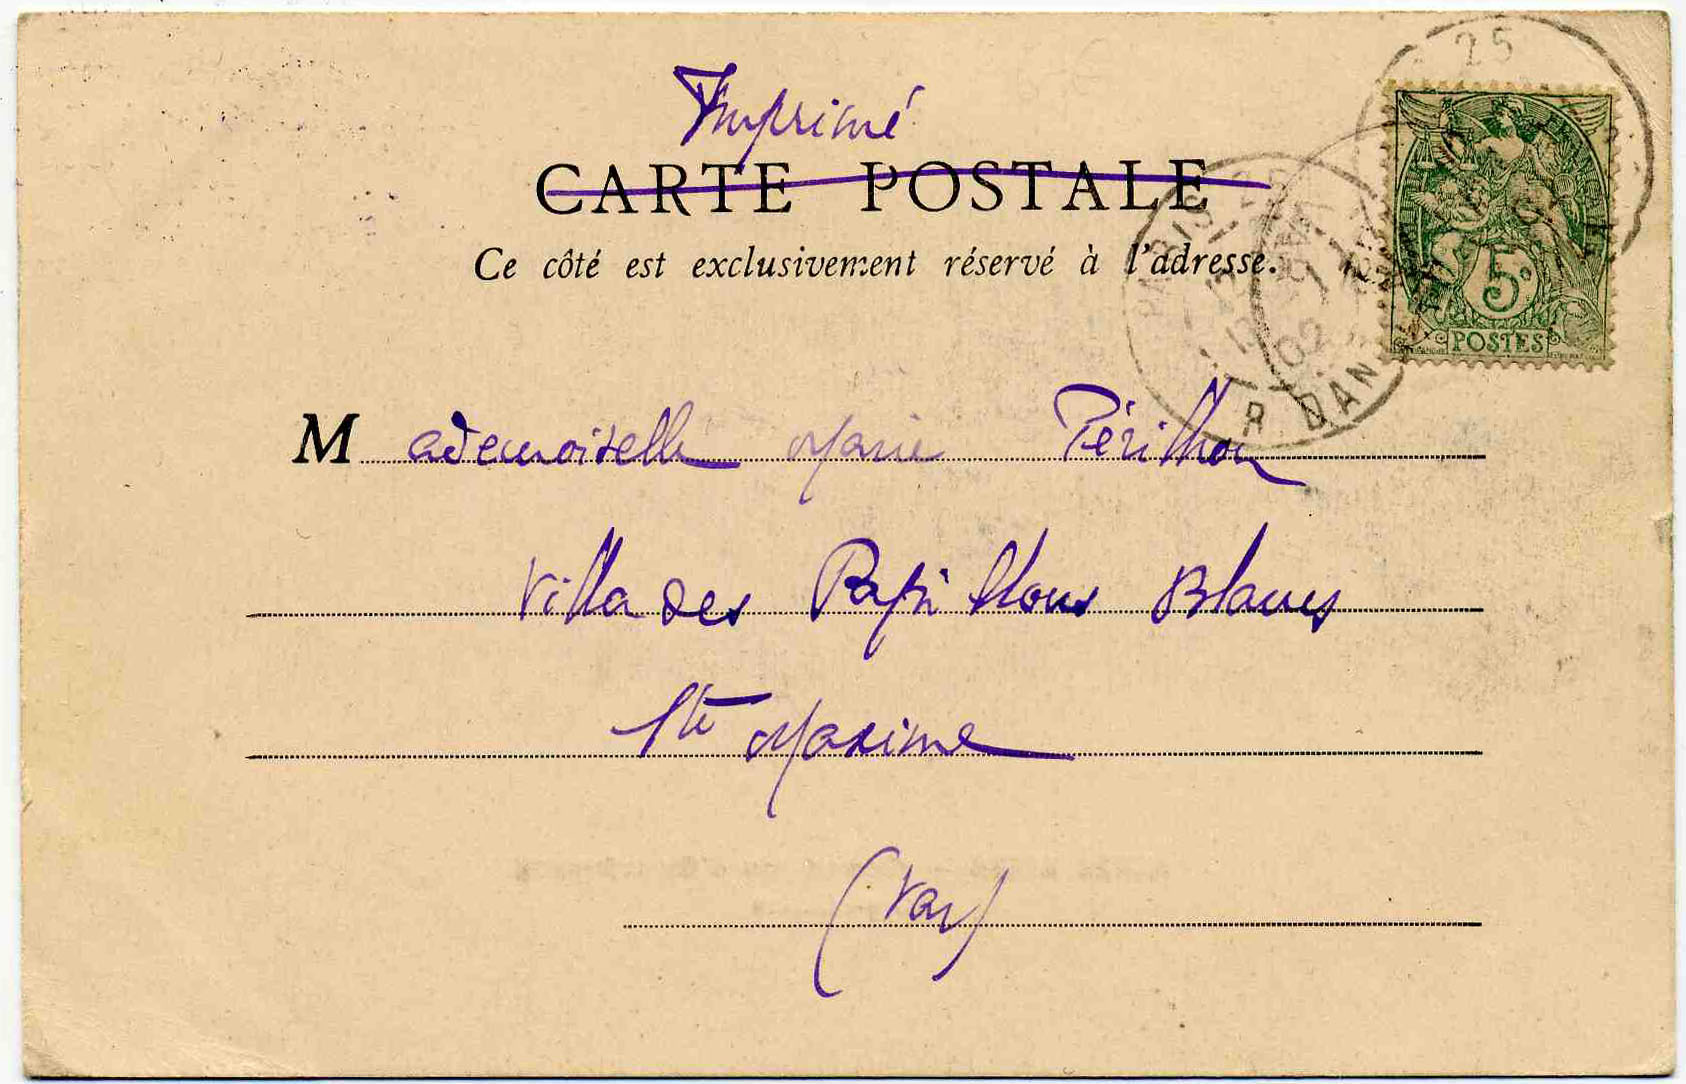 Imprimé
CARTE POSTALE
Ce côté est exclusivement réservé à l'adresse.
25
PARIS 25
02
R DAN
5c
POSTES
Mademoiselle Marie Périlhou
Villa des Papillons Blancs
Ste Maxime
(Var)